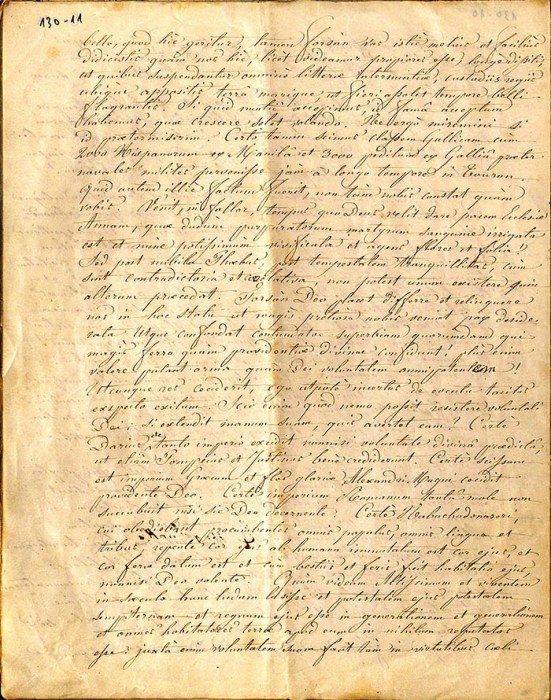 130-11
bello, quod hic geritur, tamen forsan vos istic melius et facilius
didicistis quam nos hic, licet videamur propiores esse longe
ut quibus suspendantur omnino litterae custodiis
ubique appositis terra marique, ut fieri solet tempore belli
flagrantis. Si quid multi accepimus id fama acceptum
habemus, quae crescere solet volando. Ne ergo miremini si
id praetermiserim. Certe tamen scimus classem Gallicam cum
2000 Hispanorum ex Manilâ et 3000 peditum ex Galliâ praeter
navales milites pervenisse jam a longo tempore in Touron.
Quid autem illic factum fuerit, non tam nobis constat quam
vobis. Venit, ni fallor, tempus quo Deus velit dare pacem Ecclesiae
Annam, quae dudum purpuratorum martyrum sanguine irrigata
est et nunc potissimum vivificata et ingens floret et folia!
Sed post nubila Phoebus, post tempestatem tranquillitas, cum
sint contradictoria et relativa, non potest unum existere quin
alterum praecedat. Forsan Deo placet differre et relinquere
nos in hoc statu ut magis pretiosa nobis veniat pax deside-
rata utque confundat contundatque superbiam quorumdam qui
magis ferro quam providentiae divinae confidunt, plus enim
valere putant arma quam Dei voluntatem omnipotentem!
Utcunque res ceciderit, ego utpote incertus de eventu tacitus
exspecto exitum. Scio enim quod nemo possit resistere voluntati
Dei: si extendit manum suam, quis avertet eam? Certe
Darius de tanto imperio excidit nonnisi voluntate divina praedicta,
ut etiam Pompeius et Justinus bene crediderunt. Certe scissum
est imperium Graecum et flos gloriae Alexandri Magni cecidit
providente Deo. Certe imperium Romanum tanta mole non
succubuit nisi sic Deo decernente. Certe Nabuchodonosori,
cui obediebant procumbentes omnis populus, omnis lingua et
tribus, repente cor ejus ab humano immutatum est cor ejus, et
cor ferae datum est et cum bestiis et feris fuit habitatio ejus
nonnisi Deo volente. Quin viderim Altissimum et viventem
in saecula hunc ludum lusisse et potestatem ejus potestatem
sempiternam et regnum ejus esse in generationem et generationem
et omnes habitatores terrae apud eum in nihilum reputatos
esse: juxta enim voluntatem suam facit tam in virtutibus coeli